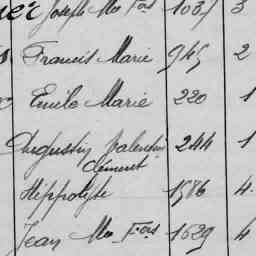 Joseph Mie Fois 1037 3
Francis Marie 945 2
Emile Marie 220 1
Augustin Valentin 244 1
Clément
Hippolyte 1586 4.
Jean Mie Fois 1629 4